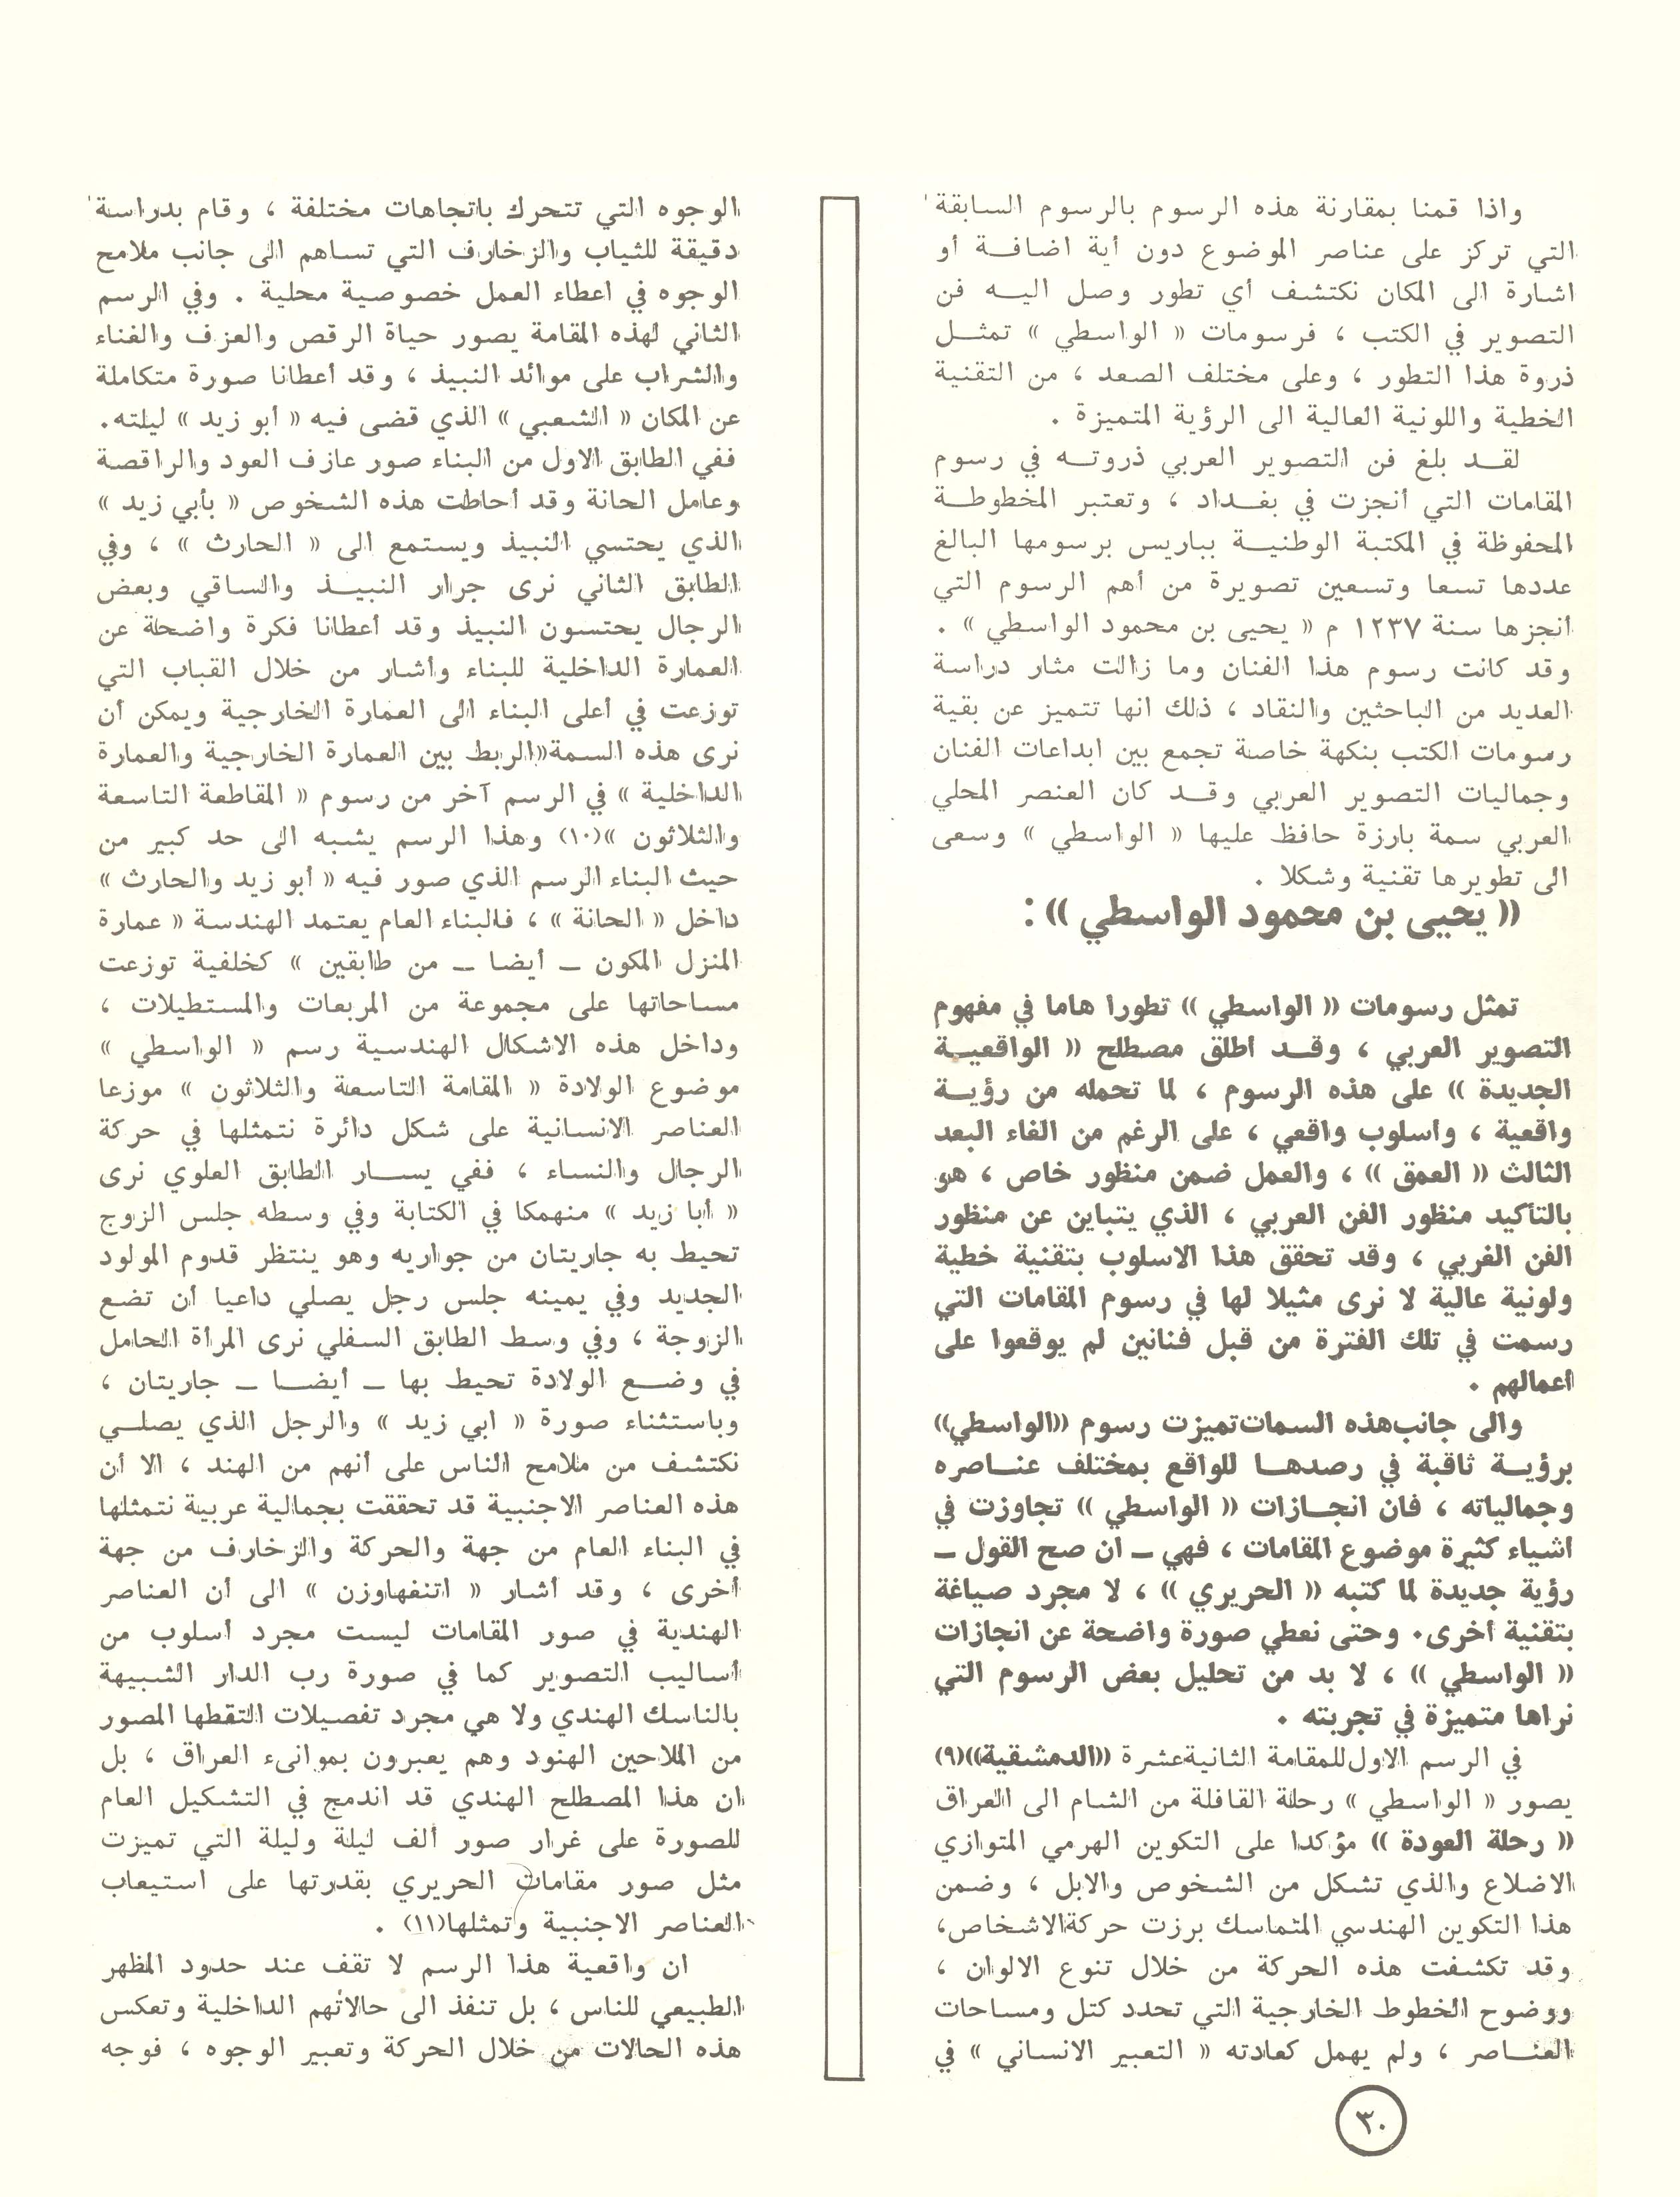 واذا قمنا بمقارنة هذه الرسوم بالرسوم السابقة
التي تركز على عناصر الموضوع دون أية اضافة أو
اشارة الى المكان نكتشف أي تطور وصل اليه فن
التصوير في الكتب ، فرسومات « الواسطي » تمثل
ذروة هذا التطور ، وعلى مختلف الصعد ، من التقنية
الخطية واللونية العالية الى الرؤية المتميزة .
لقد بلغ فن التصوير العربي ذروته في رسوم
المقامات التي أنجزت في بغداد ، وتعتبر المخطوطة
المحفوظة في المكتبة الوطنية بباريس برسومها البالغ
عددها تسعا وتسعين تصويرة من أهم الرسوم التي
أنجزها سنة ١٢٣٧ م « يحيى بن محمود الواسطي » .
وقد كانت رسوم هذا الفنان وما زالت مثار دراسة
العديد من الباحثين والنقاد ، ذلك انها تتميز عن بقية
رسومات الكتب بنكهة خاصة تجمع بين ابداعات الفنان
وجماليات التصوير العربي وقد كان العنصر المحلي
العربي سمة بارزة حافظ عليها « الواسطي » وسعى
الى تطويرها تقنية وشكلا .
« يحيى بن محمود الواسطي » :
تمثل رسومات « الواسطي » تطورا هاما في مفهوم
التصوير العربي ، وقد أطلق مصطلح « الواقعية
الجديدة » على هذه الرسوم ، لما تحمله من رؤية
واقعية ، وأسلوب واقعي ، على الرغم من الغاء البعد
الثالث « العمق » ، والعمل ضمن منظور خاص ، هو
بالتأكيد منظور الفن العربي ، الذي يتباين عن منظور
الفن الغربي ، وقد تحقق هذا الاسلوب بتقنية خطية
ولونية عالية لا نرى مثيلا لها في رسوم المقامات التي
رسمت في تلك الفترة من قبل فنانين لم يوقعوا على
أعمالهم .
والى جانب هذه السمات تميزت رسوم «الواسطي»
برؤية ثاقبة في رصدها للواقع بمختلف عناصره
وجمالياته ، فان انجازات « الواسطي » تجاوزت في
أشياء كثيرة موضوع المقامات ، فهي ـ ان صح القول ـ
رؤية جديدة لما كتبه « الحريري » ، لا مجرد صياغة
بتقنية أخرى. وحتى نعطي صورة واضحة عن انجازات
« الواسطي » ، لا بد من تحليل بعض الرسوم التي
نراها متميزة في تجربته .
في الرسم الاول للمقامة الثانية عشرة «الدمشقية»(٩)
يصور « الواسطي » رحلة القافلة من الشام الى العراق
« رحلة العودة » مؤكدا على التكوين الهرمي المتوازي
الاضلاع والذي تشكل من الشخوص والابل ، وضمن
هذا التكوين الهندسي المتماسك برزت حركة الاشخاص،
وقد تكشفت هذه الحركة من خلال تنوع الالوان ،
ووضوح الخطوط الخارجية التي تحدد كتل ومساحات
العناصر ، ولم يهمل كعادته « التعبير الانساني » في
الوجوه التي تتحرك باتجاهات مختلفة ، وقام بدراسة
دقيقة للثياب والزخارف التي تساهم الى جانب ملامح
الوجوه في اعطاء العمل خصوصية محلية . وفي الرسم
الثاني لهذه المقامة يصور حياة الرقص والعزف والغناء
والشراب على موائد النبيذ ، وقد أعطانا صورة متكاملة
عن المكان « الشعبي » الذي قضى فيه « أبو زيد » ليلته.
ففي الطابق الاول من البناء صور عازف العود والراقصة
وعامل الحانة وقد أحاطت هذه الشخوص « بأبي زيد »
الذي يحتسي النبيذ ويستمع الى « الحارث » ، وفي
الطابق الثاني نرى جرار النبيذ والساقي وبعض
الرجال يحتسون النبيذ وقد أعطانا فكرة واضحة عن
العمارة الداخلية للبناء وأشار من خلال القباب التي
توزعت في أعلى البناء الى العمارة الخارجية ويمكن أن
نرى هذه السمة«الربط بين العمارة الخارجية والعمارة
الداخلية » في الرسم آخر من رسوم « المقاطعة التاسعة
والثلاثون »(١٠) وهذا الرسم يشبه الى حد كبير من
حيث البناء الرسم الذي صور فيه « أبو زيد والحارث »
داخل « الحانة » ، فالبناء العام يعتمد الهندسة « عمارة
المنزل المكون ـ أيضا ـ من طابقين » كخلفية توزعت
مساحاتها على مجموعة من المربعات والمستطيلات ،
وداخل هذه الاشكال الهندسية رسم « الواسطي »
موضوع الولادة « المقامة التاسعة والثلاثون » موزعا
العناصر الانسانية على شكل دائرة نتمثلها في حركة
الرجال والنساء ، ففي يسار الطابق العلوي نرى
« أبا زيد » منهمكا في الكتابة وفي وسطه جلس الزوج
تحيط به جاريتان من جواريه وهو ينتظر قدوم المولود
الجديد وفي يمينه جلس رجل يصلي داعيا أن تضع
الزوجة ، وفي وسط الطابق السفلي نرى المرأة الحامل
في وضع الولادة تحيط بها ـ أيضا ـ جاريتان ،
وباستثناء صورة « ابي زيد » والرجل الذي يصلي
نكتشف من ملامح الناس على أنهم من الهند ، الا أن
هذه العناصر الاجنبية قد تحققت بجمالية عربية نتمثلها
في البناء العام من جهة والحركة والزخارف من جهة
أخرى ، وقد أشار « اتنفهاوزن » الى أن العناصر
الهندية في صور المقامات ليست مجرد أسلوب من
أساليب التصوير كما في صورة رب الدار الشبيهة
بالناسك الهندي ولا هي مجرد تفصيلات التقطها المصور
من الملاحين الهنود وهم يعبرون بموانىء العراق ، بل
ان هذا المصطلح الهندي قد اندمج في التشكيل العام
للصورة على غرار صور ألف ليلة وليلة التي تميزت
مثل صور مقامات الحريري بقدرتها على استيعاب
العناصر الاجنبية وتمثلها(١١) .
ان واقعية هذا الرسم لا تقف عند حدود المظهر
الطبيعي للناس ، بل تنفذ الى حالاتهم الداخلية وتعكس
هذه الحالات من خلال الحركة وتعبير الوجوه ، فوجه
٣٠